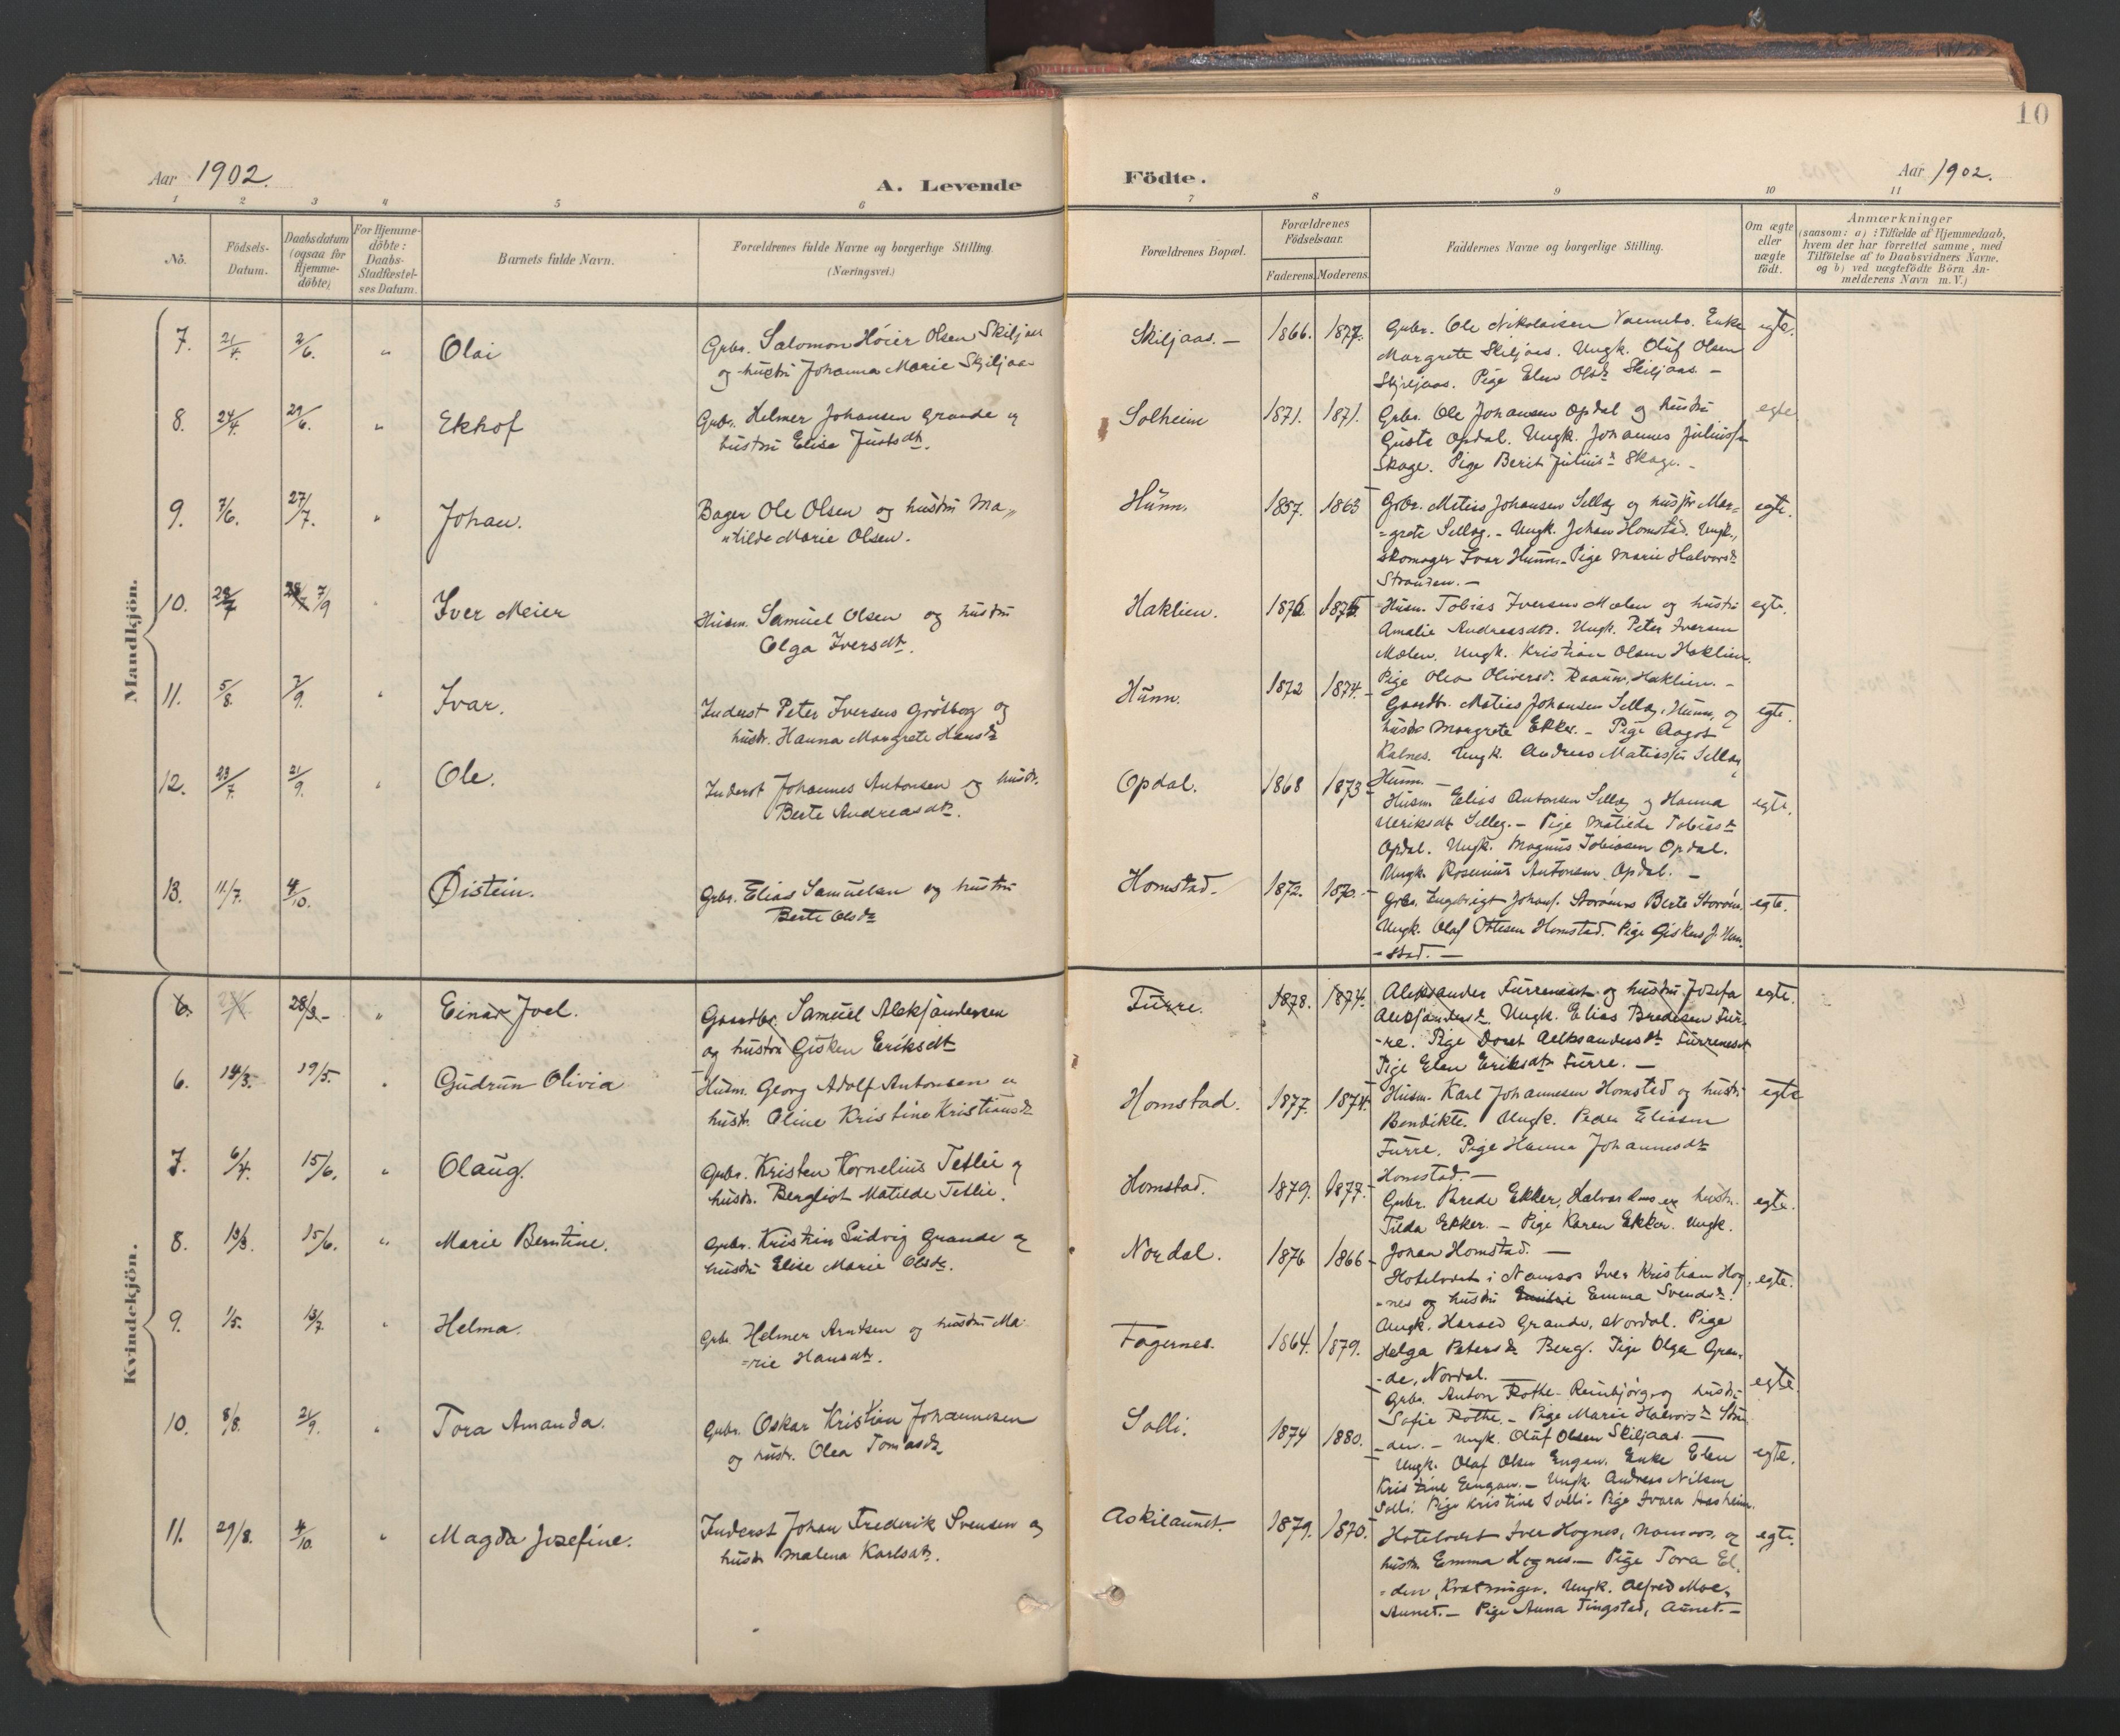 10
Aar 1902.
A. Levende
Födte.
Aar 1902.
1 2 3 4 5 6 7 8 9 10 11
No.
Födsels-
Datum.
Daabsdatum
(ogsaa for
Hjemme-
döbte)
For Hjemme-
döbte:
Daabs-
Stadfæstel-
ses Datum.
Barnets fulde Navn.
Forældrenes fulde Navne og borgerlige Stilling.
(Næringsvei.)
Forældrenes Bopæl.
Forældrenes
Födselsaar.
Faderens. Moderens.
Faddernes Navne og borgerlige Stilling.
Om ægte
eller
uægte
födt.
Anmærkninger
(saasom: a) i Tilfælde af Hjemmedaab,
hvem der har forrettet samme, med
Tilföielse af to Daabsvidners Navne.
og b) ved uægtefödte Börn An-
melderens Navn m. V.)
Mandkjön.
7. 21/4. 2/6. " Olai
Grbr. Salomon Höier Olsen Skiljaas
og hustru Johanna Marie Skiljaas
Skiljaas. — 1866. 1877.
Gubr. Ole Nikolaisen Vannebo. Enke
Margrete Skiljaas. Ungk. Oluf Olsen
Skiljaas. Pige Elen Olsdr Skiljaas. —
egte.
8. 24/4. 29/6. " Ekhof
Grbr. Helmer Johansen Grande og
hustru Elise Justsdtr.
Solheim 1871. 1871.
Grbr. Ole Johansen Opdal og hustru
Guste Opdal. Ungk. Johannes Julius/n
Skage. Pige Berit Juliusdr Skage. —
egte
9. 7/6. 27/7. " Johan.
Bager Ole Olsen og hustru Ma„
„tilde Marie Olsen.
Hunn. 1857. 1863
Grbr. Mitias Johansen Sellæg og hustr Mar=
=grete Sellæg. — Ungk. Johan Homstad. Ungk.,
skomager Ivar Hunn. — Pige Marie Halvorsdr
Stranden. —
egte.
10. 28/7 7/9 " Iver Meier
Husm. Samuel Olsen og hustru
Olga Iversdtr.
Haklien. 1876. 1875.
Husm. Tobias Iversen Moelen og hustru
Amalie Andreasdtr. Ungk. Peter Iversen
Moelen. Ungk. Kristian Olsen Haklien.
Pige Olea Oliversdr. Raaum, Haklien. —
egte.
11. 5/8. 7/9. " Ivar.
Inderst Peter Iversen Grötberg og
hustr. Hanna Margrete Hansdr
Hunn. 1872 1874.
Gaardbr. Matias Johansen Sellæg, Hunn, og
hustr Margrete Ekker. — Pige Aagot
Kalnes. Ungk. Andreas Matias/n Sellæg,
Hunn. —
egte.
12. 23/7. 21/9. " Ole.
Inderst Johannes Antonsen og hustr.
Berte Andreasdtr.
Opdal. 1868 1873
Husm. Elias Antonsen Sellæg og Hanna
Ulriksdt Selleg. — Pige Matilde Tobiasdr
Opdal. Ungk. Magnus Tobiasen Opdal.
Ungk. Rosenius Antonsen Opdal. —
egte.
13. 11/7. 4/10. Øistein.
Grbr. Elias Samuelsen og hustru
Berte Olsdr
Homstad. 1872. 1870.
Grbr. Engebrigt Johans. Storöen Berte Storöen.
Ungk. Olaf Ottesen Homstad. Pige Gisken J. Hom-
-stad. —
egte.
Kvindekjön.
6. 28/3. " Einar Joel.
Gaardbr. Samuel Aleksandersen
og hustru Gisken Eriksdt
Furre. 1878. 1874.
Aleksander Furreneset og hustru Josefa
Aleksandersdr. Ungk. Elias Bredesen Fur-
-re. Pige Doret Aleksandersdt Furreneset
Pige Elen Eriksdtr Furre. —
egte.
6. 14/3. 19/5. " Gudrun Olivia
Husm. Georg Adolf Antonsen u
hustr. Oline Kristine Kristiansdr
Homstad. 1877. 1874.
Husm. Karl Johannesen Homsted og hustr
Bendikte. Ungk. Peder Eliasen
Furre. Pige Hanna Johannesdtr
Homstad. —
egte
7. 6/4. 15/6. " Olaug.
Grbr. Kristen Kornelius Tetlie og
hustr. Bergliot Matilde Tetlie.
Homstad. 1879. 1877.
Grbr. Brede Ekker, Halvor Aas og hustr.
Tilda Ekker. — Pige Karen Ekker. Ungk.
Johan Homstad. —
egte.
8. 13/3. 15/6. " Marie Berntine.
Grbr. Kristian Ludvig Grande og
hustru Elise Marie Olsdr.
Nordal. 1876 1866
Hotelvært i Namsos Iver Kristian Hog,
-nes og hustru Emma Svendsdr.
Ungk. Harald Grande, Nordal. Pige
Helga Petersdr Berg. Pige Olga Gran-
-de, Nordal. —
egte.
9. 1/5. 13/7. " Helma.
Grbr. Helmer Arntsen og hustru Ma-
=rie Hansdtr.
Fagernes. 1864. 1879.
Grbr. Anton Rothe- Reinbjörg og hustru
Sofie Rothe. — Pige Marie Halvorsdr Stran
-den. — Ungk. Oluf Olsen Skiljaas. —
egte.
10. 8/8. 21/9. " Tora Amanda.
Gubr. Oskar Kristian Johannesen
og hustr. Olea Tomasdr
Solli. 1874 1880.
Ungk. Olaf Olsen Engen. Enke Elen
Kristine Engan. — Ungk. Andreas Nilsen
Solli. Pige Kristine Solli. Pige Ivara Aasheim.
egte.
11. 29/8. 4/10. " Magda Josefine.
Inderst Johan Frederik Svensen og
hustr Malena Karlsdtr.
Askilaunet. 1879. 1870.
Hotelvert Iver Hognes, Namsos, og
hustr. Emma Hognes. — Pige Tora El-
=den, Kratninger. Ungk. Alfred Moe,
Aunet. — Pige Anna Tingstad, Aunet. —
egte.